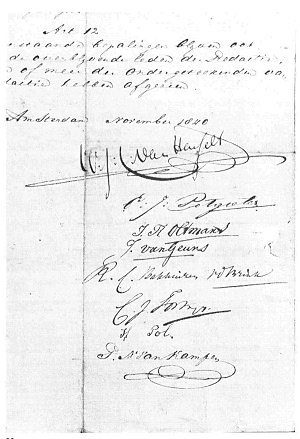 Art 12
bepalingen blijven ook
de overblijvende leden der Redactie,
of meer der ondergeteekenden
hebben afgezien.
Amsterdam November 1840
W. J. C. Van Hasselt
E. J. Potgieter
J. H. Oltmans
J. van Geuns
R. C. Bakhuizen vd Brink
C J
H Pol
P. N. Van Kampen